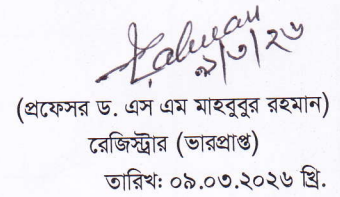 ৯/৩/২৬
(প্রফেসর ড. এস এম মাহবুবুর রহমান)
রেজিস্ট্রার (ভারপ্রাপ্ত)
তারিখ: ০৯.০৩.২০২৬ খ্রি.